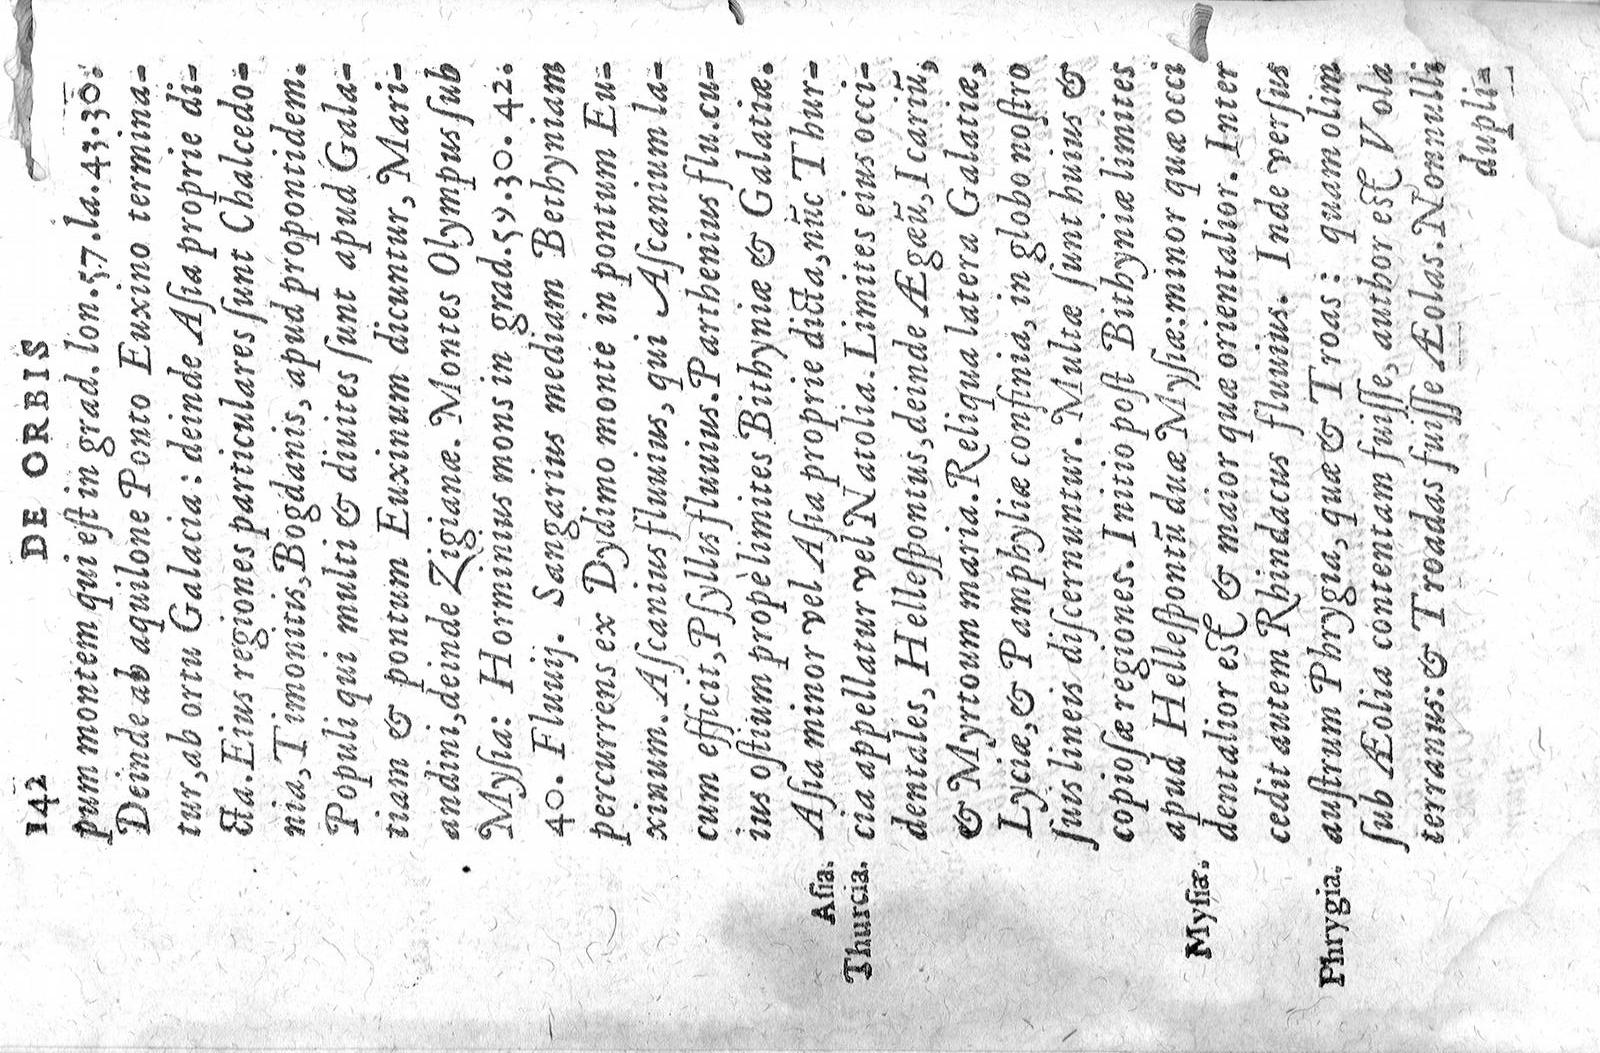 142 DE ORBIS
pum montem qui eſt in grad. lon. 57. la. 43. 30.
Deinde ab aquilone Ponto Euxino termina-
tur, ab ortu Galacia: deinde Aſia proprie di-
cta. Eius regiones particulares ſunt Chalcedo-
nia, Timonitis, Bogdanis, apud propontidem.
Populi qui multi & diuites ſunt apud Gala-
tiam & pontum Euxinum dicuntur, Mari-
andini, deinde Zigianæ. Montes Olympus ſub
Myſia: Horminius mons in grad. 59. 30. 42.
40. Fluuij. Sangarius mediam Bethyniam
percurrens ex Dydimo monte in pontum Eu-
xinum. Aſcanius fluuius, qui Aſcanium la-
cum efficit, Pſyllis fluuius. Parthenius flu. cu-
ius oſtium propè limites Bithyniæ & Galatiæ.
Aſia. Aſia minor vel Aſia proprie dicta, nũc Thur-
Thurcia. cia appellatur vel Natolia. Limites eius occi-
dentales, Helleſpontus, deinde Ægæũ, Icariũ,
& Myrtoum maria. Reliqua latera Galatiæ,
Lyciæ, & Pamphyliæ confinia, in globo noſtro
ſuis lineis diſcernuntur. Multæ ſunt huius &
copioſæ regiones. Initio poſt Bithyniæ limites
apud Helleſpontũ duæ Myſiæ: minor quæ occi
Myſiæ. dentalior eſt & maior quæ orientalior. Inter
cedit autem Rhindacus fluuius. Inde verſus
Phrygia. auſtrum Phrygia, quæ & Troas: quam olim
ſub Æolia contentam fuiſſe, author eſt Vola
terranus: & Troadas fuiſſe Æolas. Nonnulli
dupli-